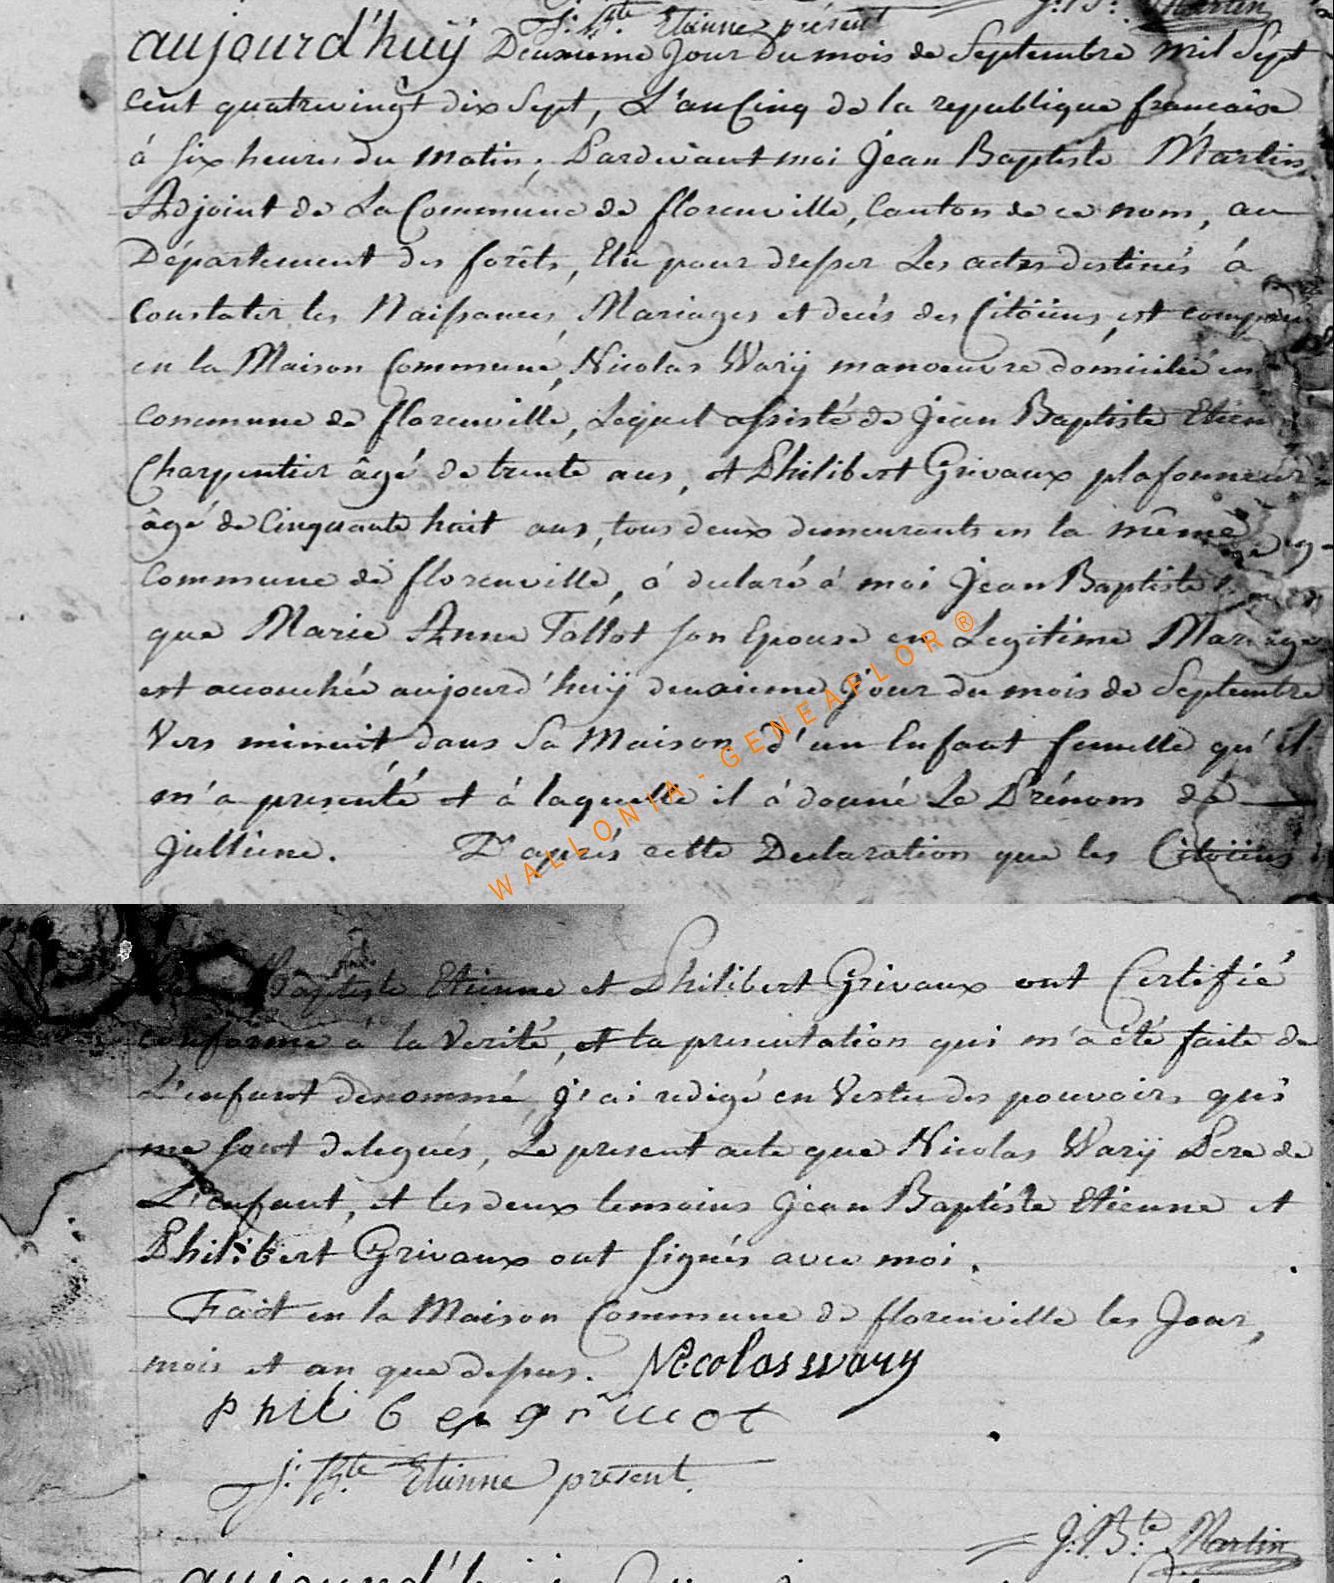 J: Bte Etienne présent J: Bt: Martin
aujourd'huÿ Deuxieme Jour du mois de Septembre mil Sept
cent quatrevingt dix Sept, L'an Cinq de la republique francaise
á six heures du matin, Pardevant moi Jean Baptiste Martin
Adjoint de La Commune de florenville, Canton de ce nom, au
Département des forêts, Elû pour dresser Les actes destinés á
Constater les Naissances, Mariages et decés des Citoïens, est comparu
en la Maison Commune, Nicolas Warÿ manoeuvre domicilié en
commune de florenville, Lequel assisté de Jean Baptiste Etien
Charpentier âgé de trente ans, et Philibert Grivaux plafonneur
âgé de Cinquante huit ans, tous deux demeurants en la même
Commune de florenville, á declaré á moi Jean Baptiste
que Marie Anne Tallot son Epouse en Legitime Mariage
est accouchée aujourd'huÿ deuxieme Jour du mois de Septembre
Vers minuit dans Sa Maison d'un Enfant femelle qu'il
m'a presenté et á laquelle il á donné Le Prénom de
Julliene. D'aprés cette Declaration que les Citoïens
Baptiste Etienne et Philibert Grivaux ont Certifié
conforme á la Verité, et la presentation qui m'a été faite de
L'enfant denommé, J'ai redigé en Vertu des pouvoirs qui
me sont delegués, Le present acte que Nicolas Warÿ Pere de
L'enfant, et les deux temoins Jean Baptiste Etienne et
Philibert Grivaux ont signés avec moi.
Fait en la Maison Commune de florenville les Jour,
mois et an que dessus. Nicolas wary
J: Bte Etienne présent.
J: Bte: Martin
aujourd'hui
WALLONIA - GENEAFLOR ®